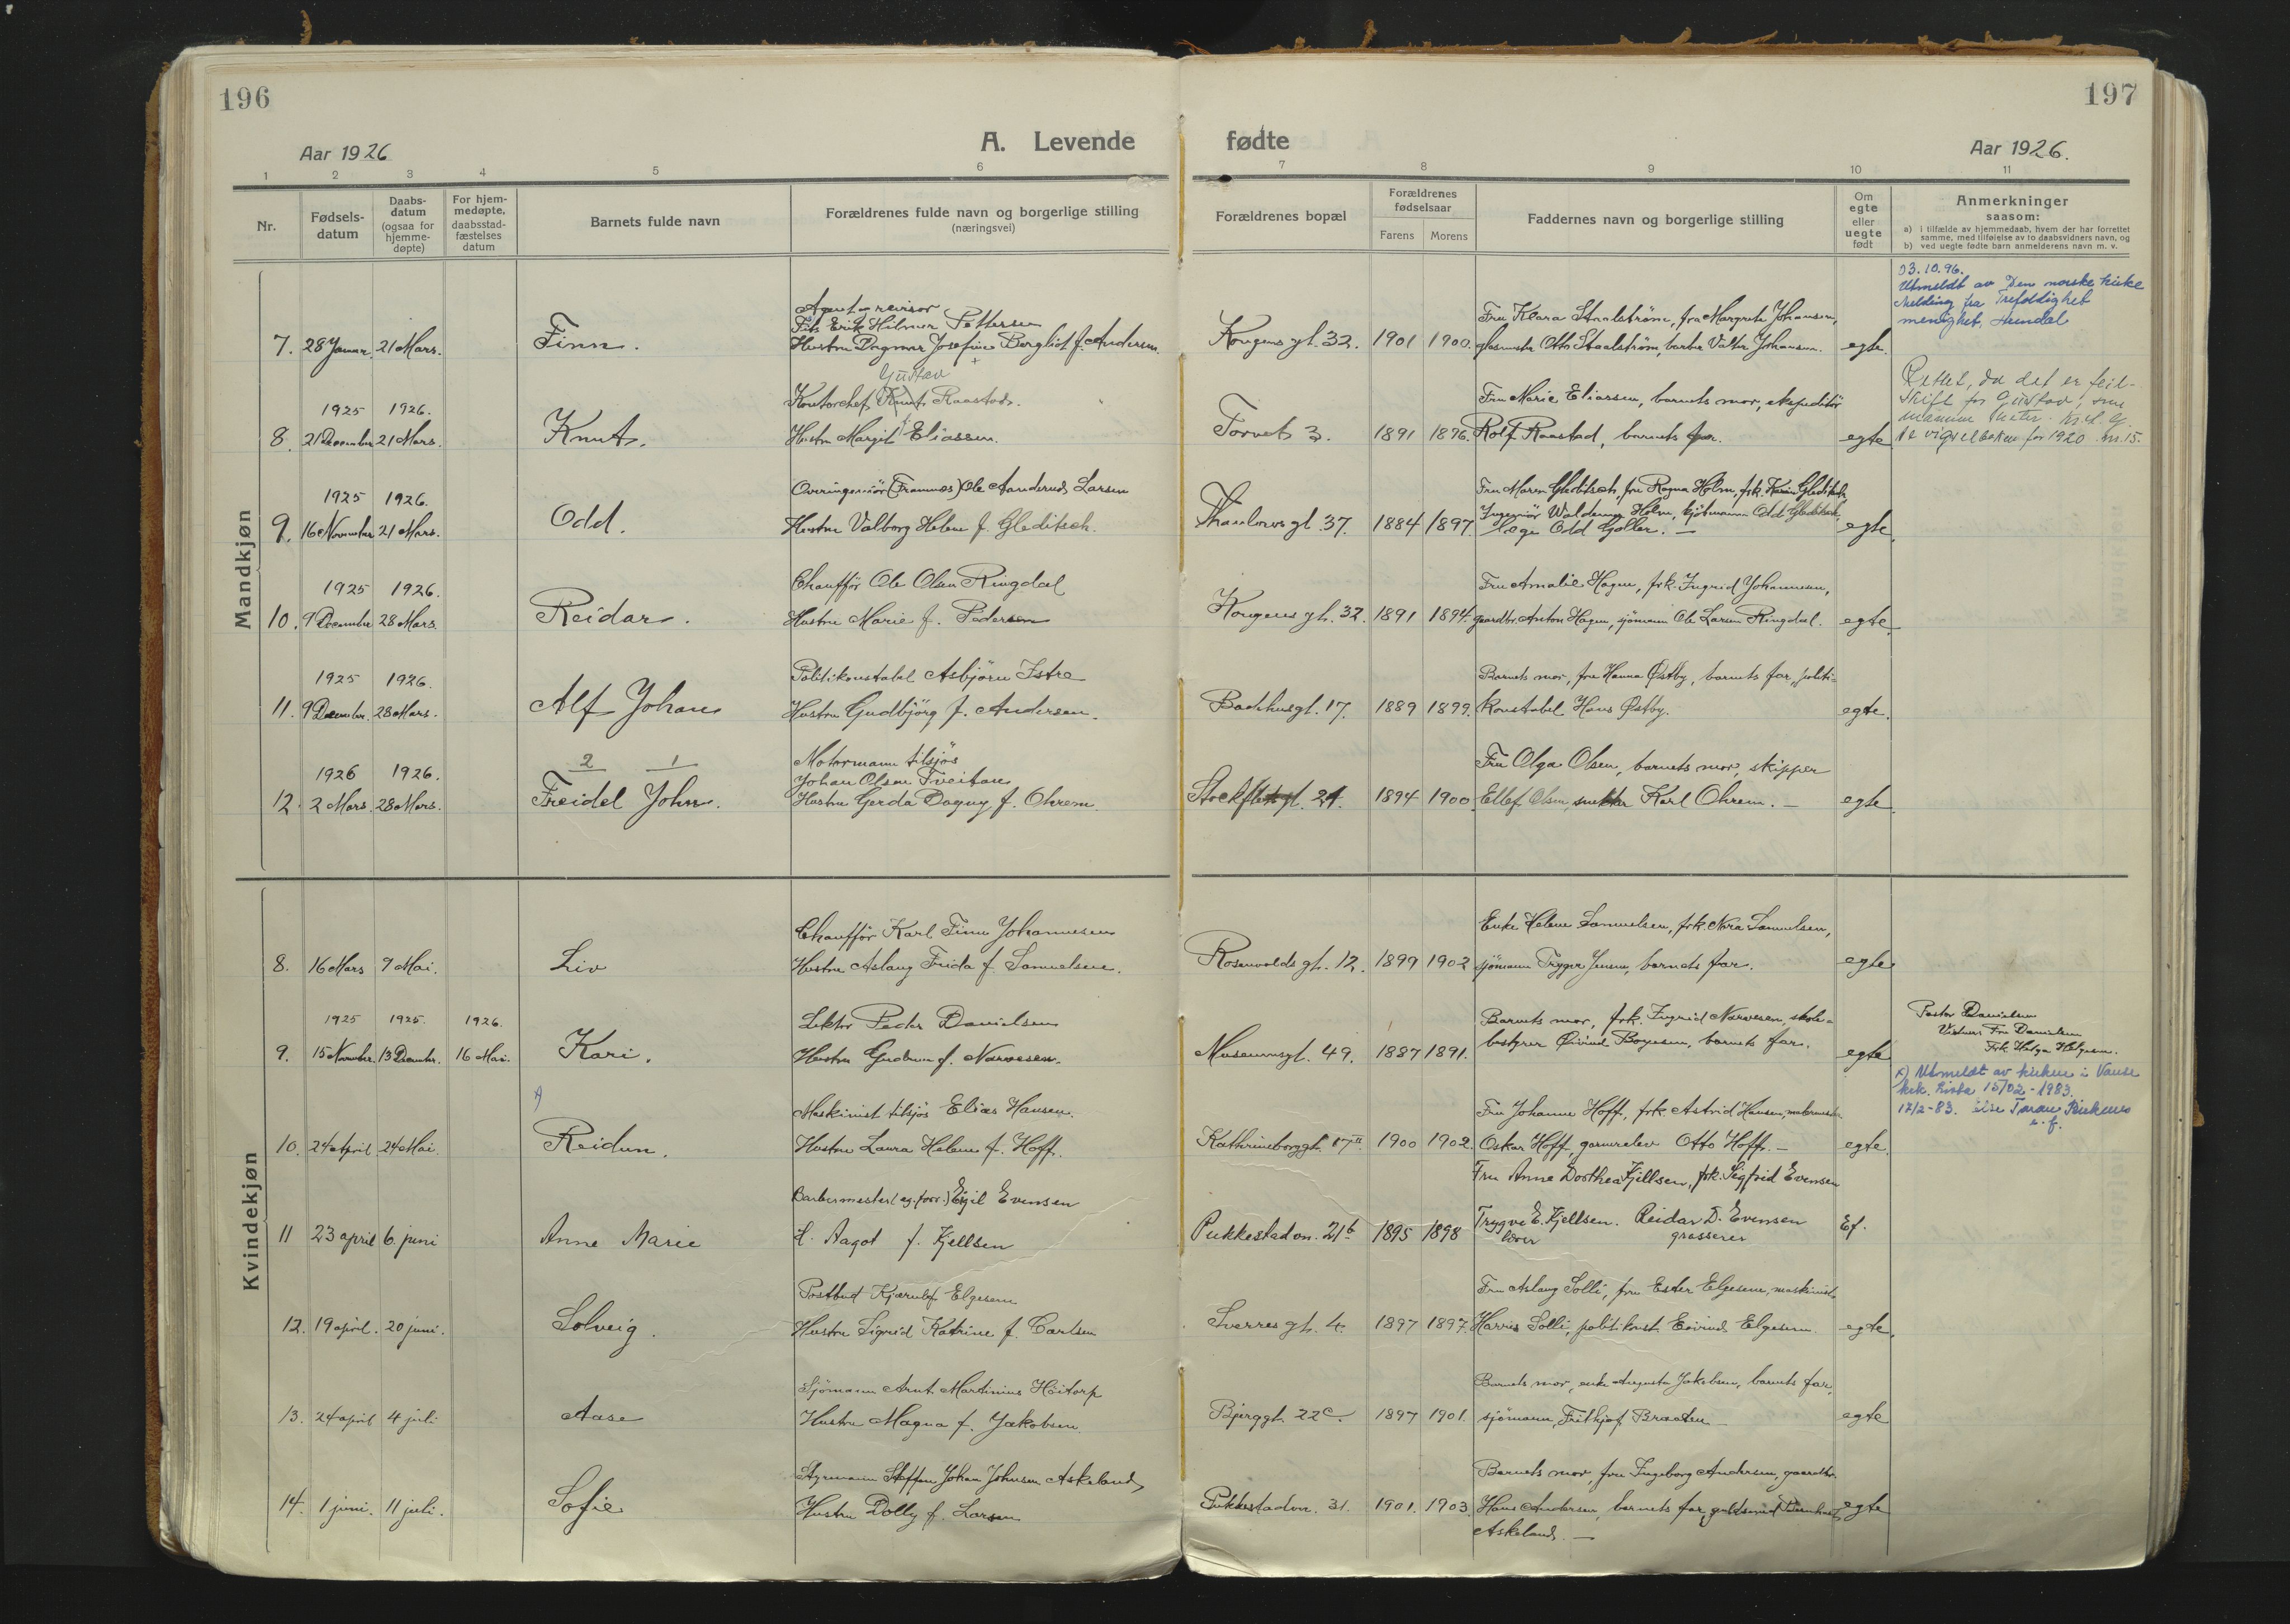 196
Aar 1926
A. Levende
1 2 3 4 5 6
Nr.
Fødsels-
datum
Daabs-
datum
(ogsaa for
hjemme-
døpte)
For hjem-
medøpte,
daabsstad-
fæstelses
datum
Barnets fulde navn
Forældrenes fulde navn og borgerlige stilling
(næringsvei)
197
fødte
Aar 1926.
7 8 9 10 11
Forældrenes bopæl
Forældrenes
fødselsaar
Farens Morens
Faddernes navn og borgerlige stilling
Om
egte
eller
uegte
født
Anmerkninger
saasom:
a) i tilfælde av hjemmedaab, hvem der har forrettet
samme, med tilføielse av to daabsvidners navn, og
b) ved uegte fødte barn anmelderens navn m. v.
Mandkjøn
7. 28 Januar 21 Mars. Finn.
Agent og revisor
Erik Hilmer Pettersen
Hustru Dagmar Josefine Bergliot f. Andersen
Kongens gt. 32. 1901 1900.
Fru Klara Staalstrøm, fru Margrete Johansen,
glasmester Otto Staalstrøm, barber Valter Johansen. egte.
03.10.96.
Utmeldt av Den norske kirke
Melding fra Trefoldighet
menighet, Arendal
1925 1926.
8. 21 December 21 Mars. Knut.
Gustav
Kontorchef Knut Raastad.
Hustru Margit f. Eliassen.
Torvet 3. 1891 1896.
Fru Marie Eliassen, barnets mor, ekspeditør
Rolf Raastad, barnets far. egte
Rettet, da det er feil-
skrift for Gustav, som
mannen heter.
vigselboken for 1920 nr. 15.
1925 1926.
9. 16 November 21 Mars. Odd.
Overingeniør (Framnæs) Ole Aanderud Larsen
Hustru Valborg Helene f. Gleditsch.
Thaulows gt. 37. 1884 1897
Fru Maren Gleditsch, fru Ragna Holm, frk. Karin Gleditsch,
Ingeniør Waldemar Holm, kjøbmann Odd Gleditsch,
læge Odd Gjøller. — egte.
1925 1926.
10. 9 December 28 Mars. Reidar.
Chauffør Ole Olsen Ringdal
Hustru Marie f. Pedersen
Kongens gt. 32. 1891 1894.
Fru Amalie Hagen, frk. Ingrid Johannesen,
gaardbr. Anton Hagen, sjømann Ole Larsen Ringdal. egte.
1925 1926.
11. 9 December. 28 Mars. Alf Johan
Politikonstabel Asbjørn Istre
Hustru Gudbjørg f. Andersen.
Badehusgt. 17. 1889 1899.
Barnets mor, fru Hanna Østby, barnets far, politi-
konstabel Hans Østby. egte.
1926 1926. 2 1
12. 2 Mars. 28 Mars. Freidel John.
Motormann tilsjøs
Johan Olsen Tveitan
Hustru Gerda Dagny f. Ohrem.
Stockfletsgt. 24. 1894 1900.
Fru Olga Olsen, barnets mor, skipper
Ellef Olsen, Karl Ohrem. — egte.
Kvindekjøn
8. 16 Mars 9 Mai. Liv
Chauffør Karl Finn Johannesen
Hustru Aslaug Frida f. Samuelsen.
Rosenvolds gt. 12. 1899 1902
Enke Helene Samuelsen, frk. Nora Samuelsen,
sjømann Trygve Jensen, barnets far. egte
1925 1925. 1926.
9. 15 November. 13 December. 16 Mai. Kari.
Lektor Peder Danielsen
Hustru Gudrun f. Narvesen.
Museumsgt. 49. 1887 1891.
Barnets mor, frk. Ingrid Narvesen, skole-
bestyrer Øivind Boyesen, barnets far. egte
Pastor Danielsen
Vidner: Fru Danielsen
Frk. Helga Helgesen.
A)
10. 24 April. 24 Mai. Reidun.
Maskinist tilsjøs Elias Hansen.
Hustru Laura Helene f. Hoff.
Kathrineborggt. 17 II 1900 1902.
Fru Johanne Hoff, frk. Astrid Hansen, malermester
Oskar Hoff, garverelev Otto Hoff. — egte.
A) Utmeldt av kirken i Vanse
kirk. Lista 15/02-1983.
17/2-83. Else
11 23 april 6. juni Anne Marie
Barbermester (eg. forr.) Egil Evensen
H. Aagot f. Kjellsen
Pukkestadvn. 21b 1895 1898
Fru Anne Dorthea Kjellsen, frk. Sigfrid Evensen
Trygve E. Kjellsen. Reidar D. Evensen
grosserer Ef.
12. 19 april. 20 juni. Solveig.
Postbud Kjærulf Elgesem
Hustru Sigrid Katrine f. Carlsen
Sverres gt. 4. 1897 1897.
Fru Aslaug Solli, fru Ester Elgesem, maskinist
Harris Solli, politikonst. Eivind Elgesem. egte.
13. 24 april 4 juli. Aase
Sjømann Arnt Martinius Høitorp
Hustru Magna f. Jakobsen.
Bjerggt. 22c. 1897 1901.
Barnets mor, enke Augusta Jakobsen, barnets far,
sjømann Frithjof Braaten — egte
14. 1 juni. 11 juli. Sofie
Styrmann Steffen Johan Johnsen Askeland
Hustru Dolly f. Larsen
Pukkestadvn. 31. 1901. 1903.
Barnets mor, fru Ingeborg Andersen, gaardbr.
Hans Andersen, barnets far, guldsmed Bernhard egte
Askeland. —